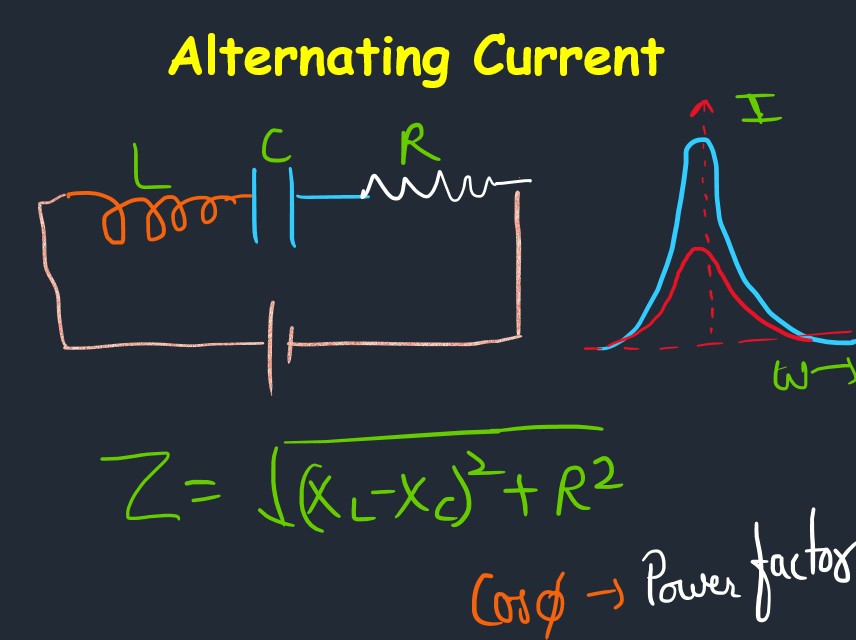 Alternating Current
L C R
I
ω→
Z = √(X_L-X_C)² + R²
Cosϕ → Power factor